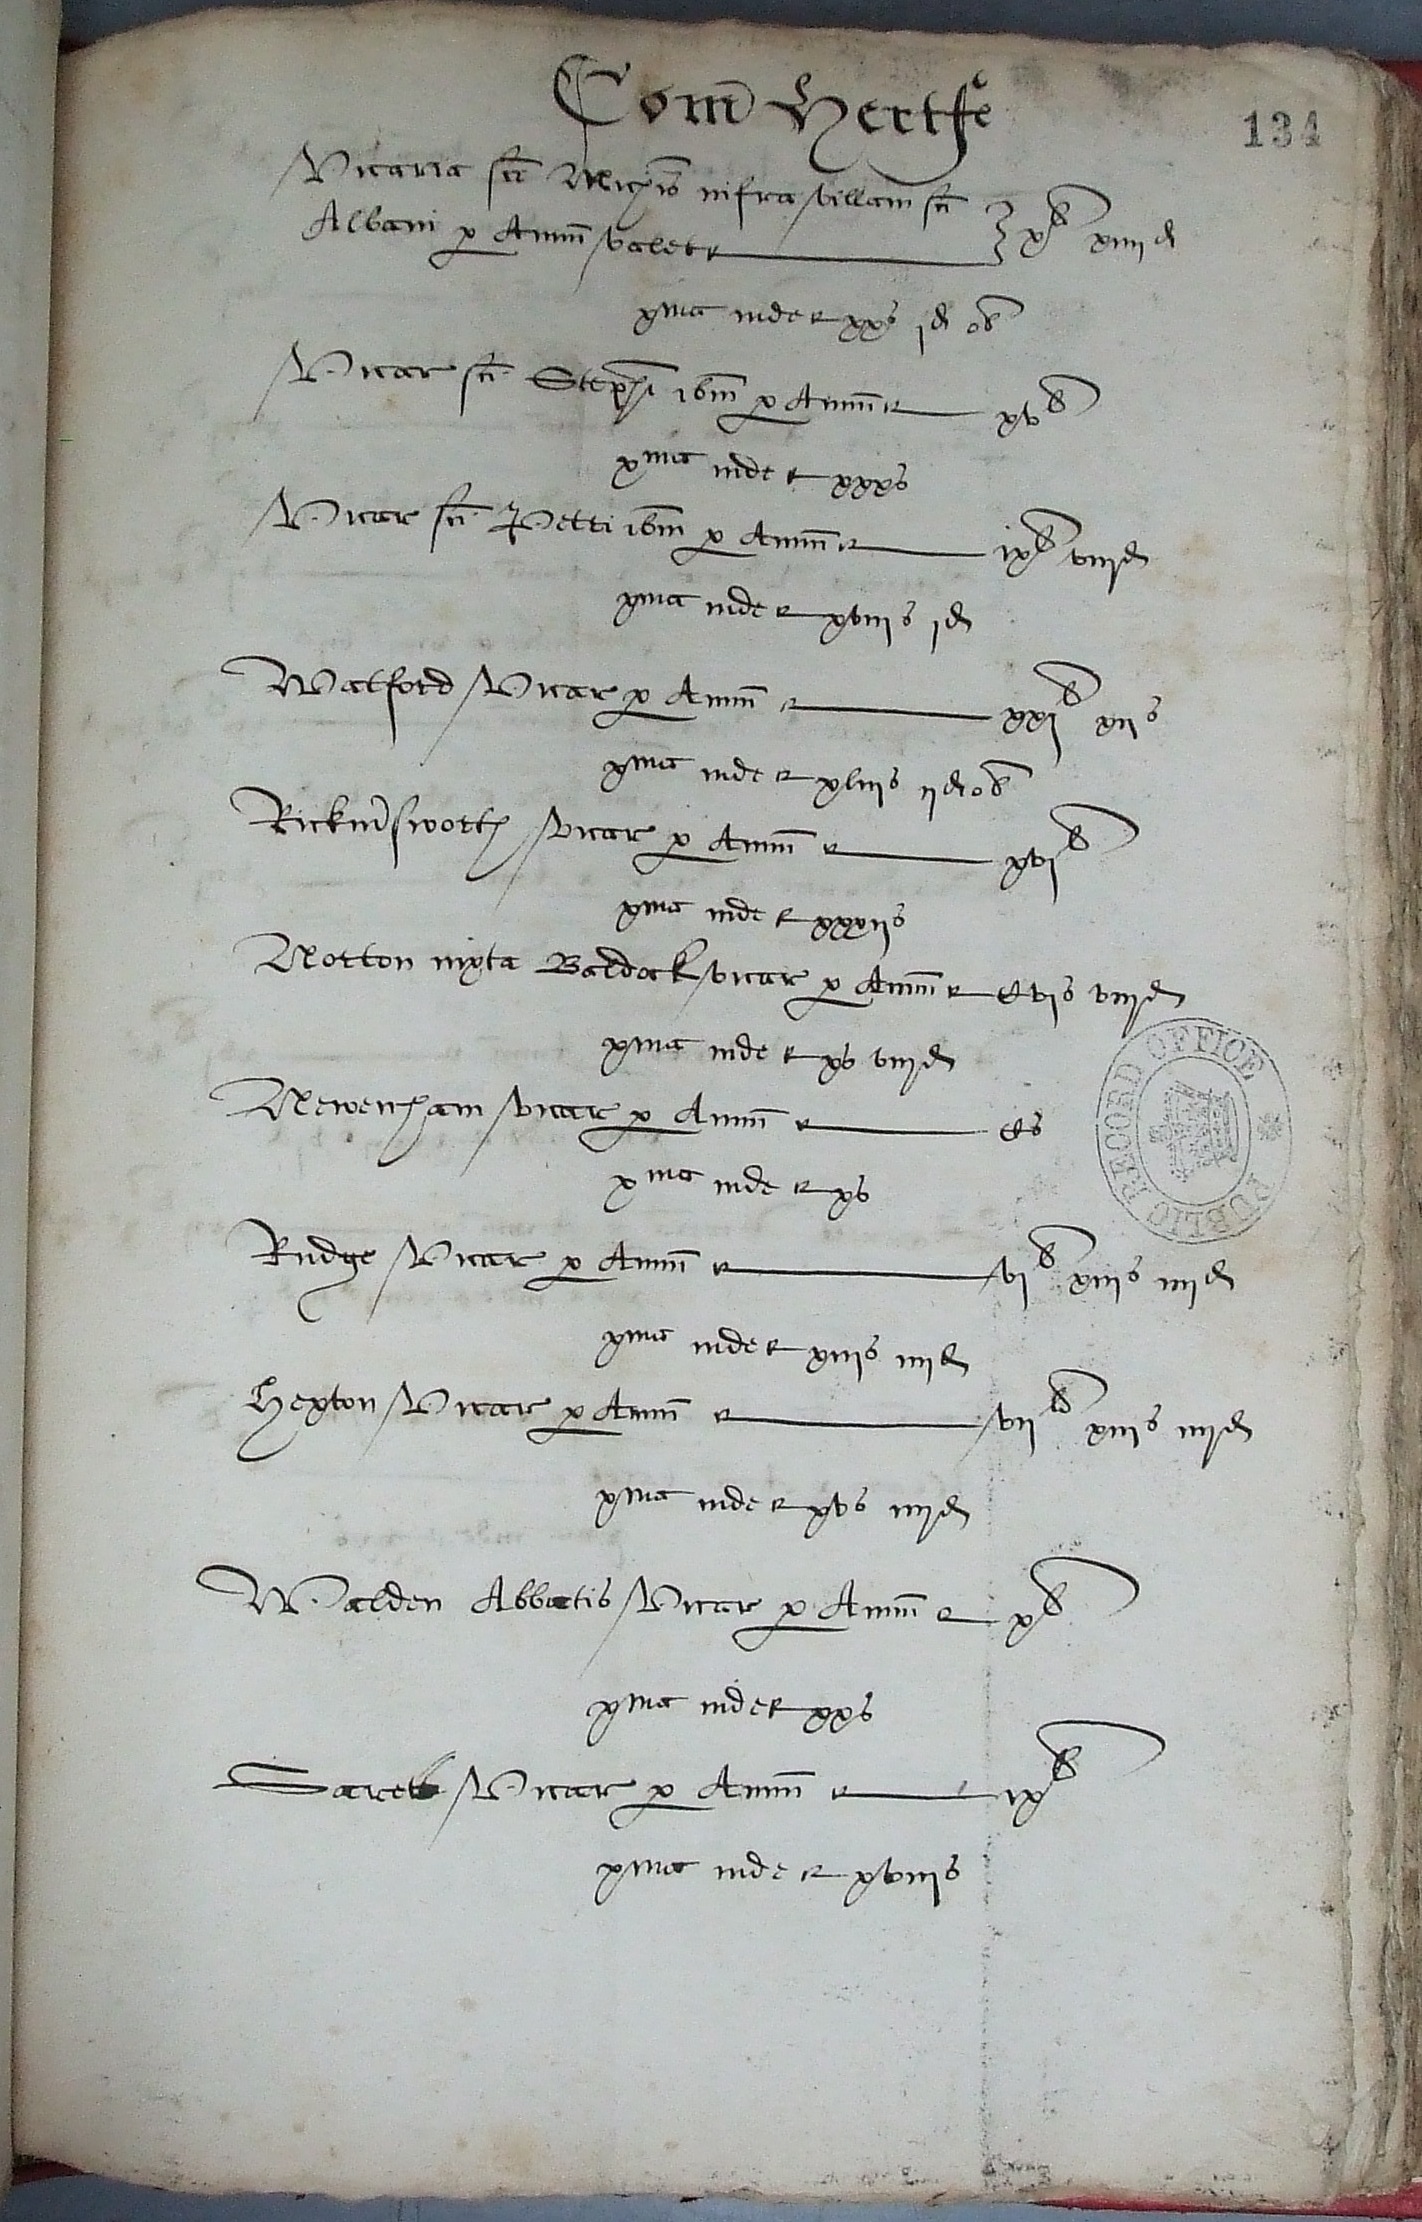 Com̃ Hertf
134
Vicaria sc̃i Mich̃is infra villam sc̃i
Albani p Annũ valet x li xiiii d
xma inde xxs id ob
Vicar sc̃i Steph̃i ib̃m p Annũ xv li
xma inde xxxs
Vicar sc̃i Petri ib̃m p Annũ ix li viijd
xma inde xviijs jd
Watford Vicar p Annũ xxj li xijs
xma inde xliijs ijd ob
Rickm̃sworth vicar p Annũ xvj li
xma inde xxxijs
Norton iuxta Baldock vicar p Annũ Cvis viijd
xma inde xs viijd
Newenham vicar p Annũ Cs
xma inde xs
Rudge Vicar p Annũ vj li xiijs iiijd
xma inde xiijs iiijd
Hexton Vicar p Annũ vij li xiijs iiijd
xma inde xvs iiijd
Walden Abbatis Vicar p Annũ x li
xma inde xxs
Saret Vicar p Annũ ix li
xma inde xviijs
PUBLIC RECORD OFFICE